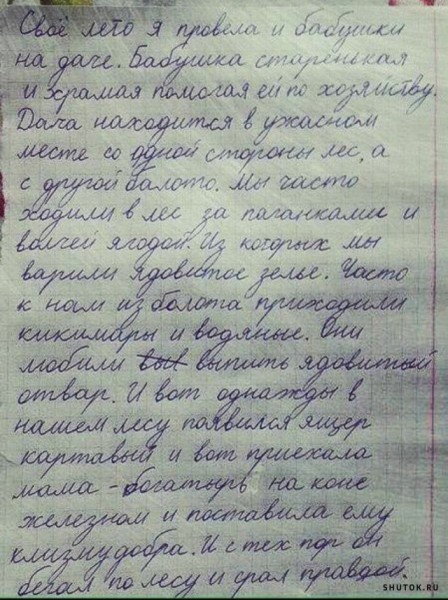 Своё лето я провела и бабушки
на даче. Бабушка старенькая
и храмая помогая ей по хозяйству.
Дача находится в ужасном
месте со одной стороны лес, а
с другой балото. Мы часто
ходили в лес за паганками и
волчей ягодой. Из которых мы
варили ядовитое зелье. Часто
к нам из болота приходили
кикимары и водяные. Они
любили выпить ядовитый
отвар. И вот однажды в
нашем лесу паявился ящер
картавый и вот приехала
мама - богатырь на коне
железном и поставила ему
клизму добра. И с тех пор он
бегал по лесу и срал правдой.
SHUTOK.RU